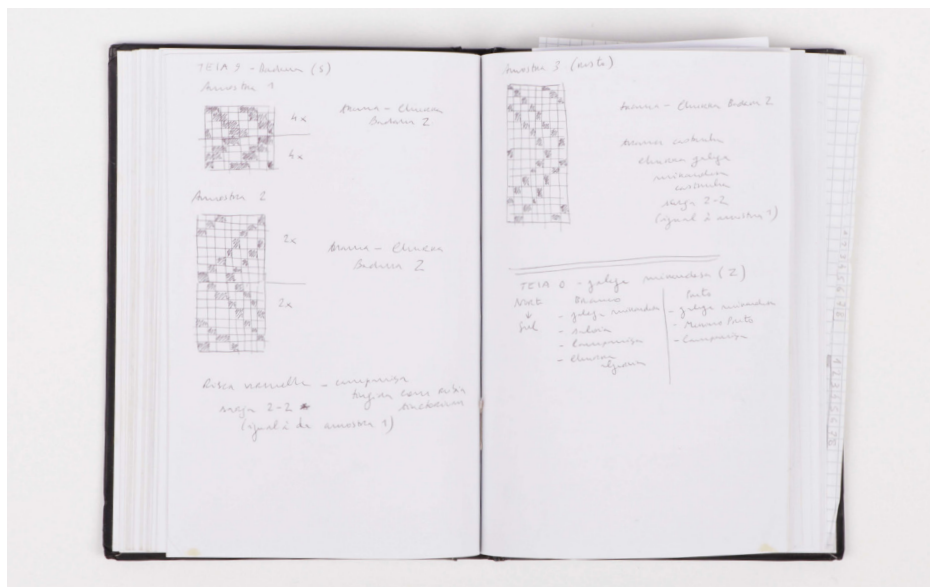 TEIA 9 - Badana (S)
Amostra 1
4x
4x
Trama - Churra
Badana Z
Amostra 2
2x
2x
Trama - Churra
Badana Z
Risca vermelha - campaniça
tingida com Rubia
tinctorum
sarja 2-2
(igual à da amostra 1)
Amostra 3 (xosta)
Trama - Churra Badana Z
churra galega
mirandesa
castanha
sarja 2-2
(igual à amostra 1)
TEIA 0 - galega mirandesa (Z)
Norte
↓
Sul
Branco
- galega mirandesa
- Campaniça
- Churra
algarvia
Preto
- galega mirandesa
- Merino Preto
- Campaniça